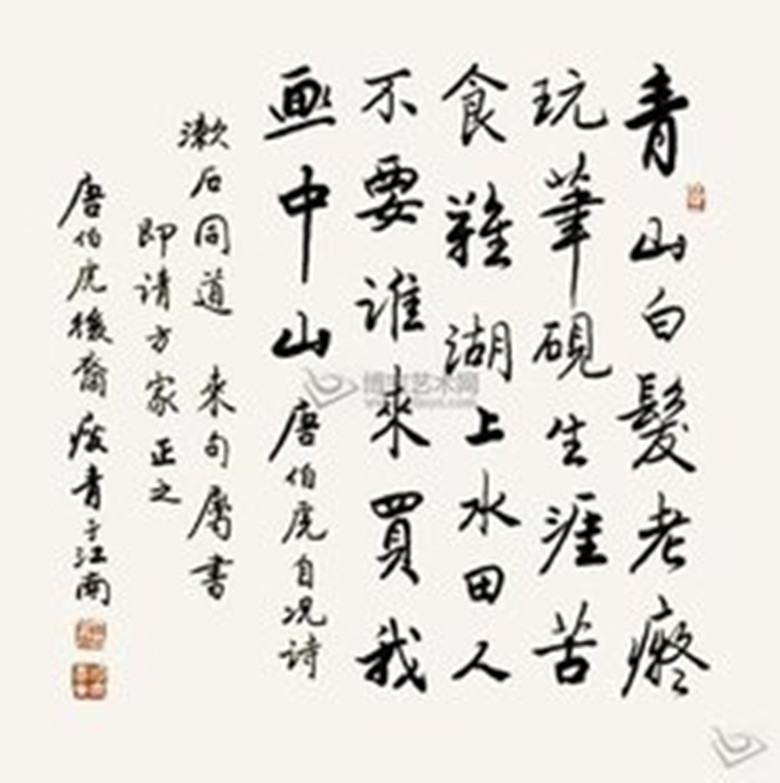 青山白髮老癡
玩筆硯生涯苦
食難湖上水田人
不要誰來買我
画中山 唐伯虎自况诗
漱石同道 来句属書
即请方家正之
唐伯虎後裔青于江南
博宝艺术网